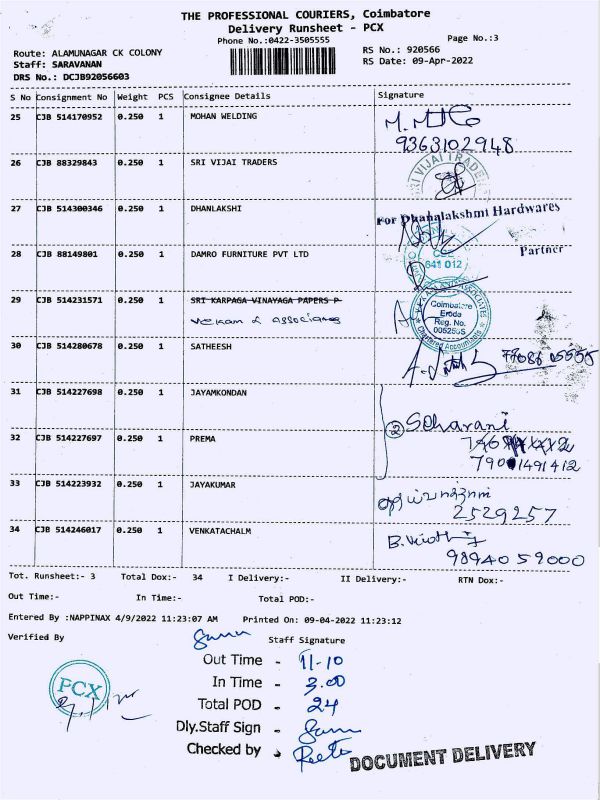 THE PROFESSIONAL COURIERS, Coimbatore
Delivery Runsheet - PCX
Phone No.:0422-3505555
Page No.:3
Route: ALAMUNAGAR CK COLONY
RS No.: 920566
Staff: SARAVANAN
RS Date: 09-Apr-2022
DRS No.: DCJB92056603
S No Consignment No Weight PCS Consignee Details Signature
25 CJB 514170952 0.250 1 MOHAN WELDING
9363102948
26 CJB 88329843 0.250 1 SRI VIJAI TRADERS
SRI VIJAI TRADERS
27 CJB 514300346 0.250 1 DHANLAKSHI
For Dhanalakshmi Hardwares
Partner
28 CJB 88149801 0.250 1 DAMRO FURNITURE PVT LTD
641 012
29 CJB 514231571 0.250 1 SRI KARPAGA VINAYAGA PAPERS P
& associates
Coimbatore
Erode
Reg. No.
Chartered Accountants
30 CJB 514280678 0.250 1 SATHEESH
31 CJB 514227698 0.250 1 JAYAMKONDAN
2
32 CJB 514227697 0.250 1 PREMA
7901491412
33 CJB 514223932 0.250 1 JAYAKUMAR
2529257
34 CJB 514246017 0.250 1 VENKATACHALM
98940 59000
Tot. Runsheet:- 3 Total Dox:- 34 I Delivery:- II Delivery:- RTN Dox:-
Out Time:- In Time:- Total POD:-
Entered By :NAPPINAX 4/9/2022 11:23:07 AM Printed On: 09-04-2022 11:23:12
Verified By
Staff Signature
Out Time - 11-10
In Time - 3.00
Total POD - 24
Dly.Staff Sign -
Checked by -
PCX
DOCUMENT DELIVERY